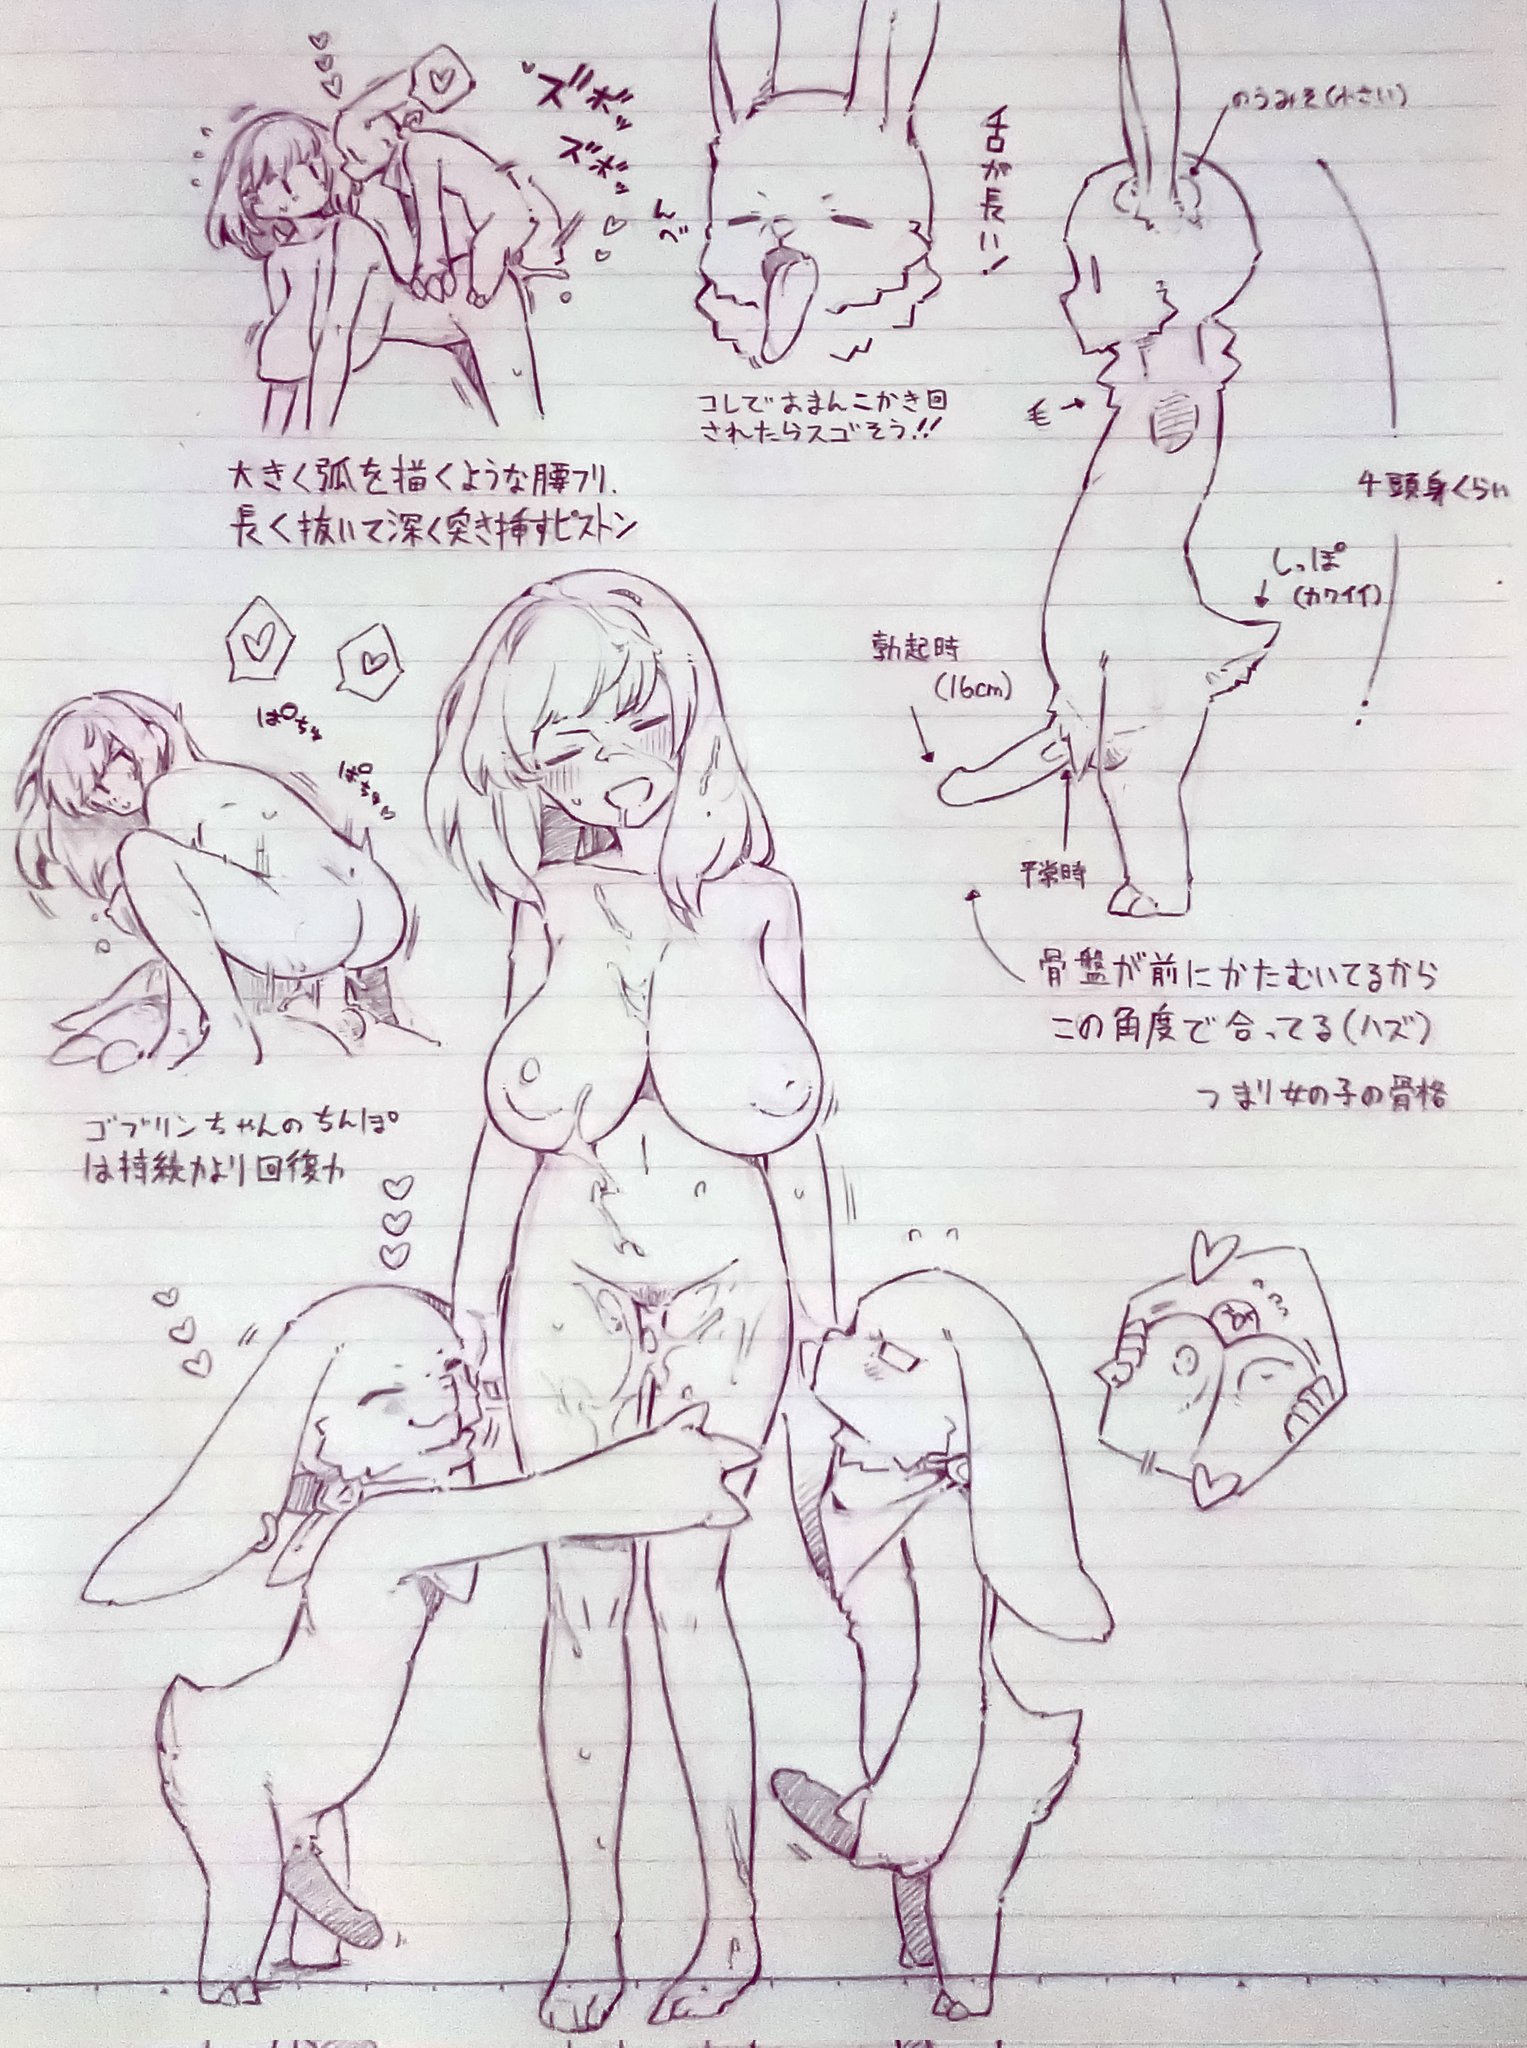 ズボッ
ズボッ
大きく弧を描くような腰フリ、
長く抜いて深く突き挿すピストン
舌が長い!
んべ
コレでおまんこかき回
されたらスゴそう!!
のうみそ(小さい)
毛
4頭身くらい
しっぽ
(カワイイ)
勃起時
(16cm)
平常時
骨盤が前にかたむいてるから
この角度で合ってる(ハズ)
つまり女の子の骨格
ぱちゅ
ぱちゅ
ゴブリンちゃんのちんぽ
は持続力より回復力